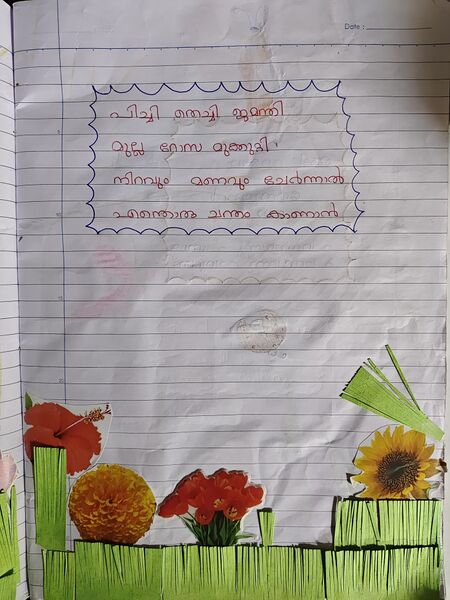 Date :
പിച്ചി തെച്ചി ജമന്തി
മുല്ല റോസ മുക്കുറ്റി
നിറവും മണവും ചേർന്നാൽ
എന്തൊരു ചന്തം കാണാൻ